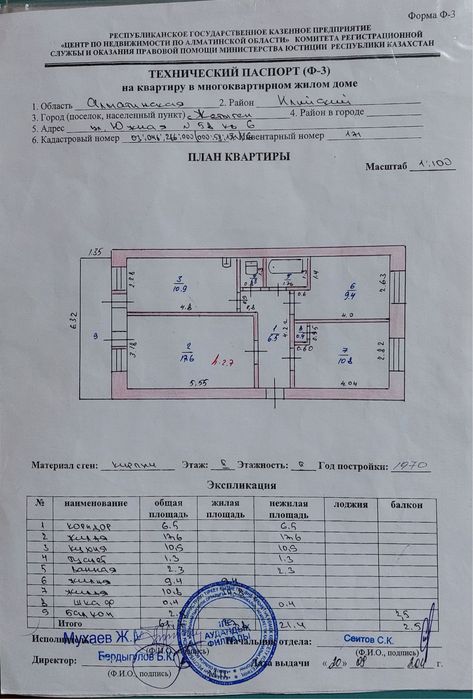 Форма Ф-3
РЕСПУБЛИКАНСКОЕ ГОСУДАРСТВЕННОЕ КАЗЕННОЕ ПРЕДПРИЯТИЕ
«ЦЕНТР ПО НЕДВИЖИМОСТИ ПО АЛМАТИНСКОЙ ОБЛАСТИ» КОМИТЕТА РЕГИСТРАЦИОННОЙ
СЛУЖБЫ И ОКАЗАНИЯ ПРАВОВОЙ ПОМОЩИ МИНИСТЕРСТВА ЮСТИЦИИ РЕСПУБЛИКИ КАЗАХСТАН
ТЕХНИЧЕСКИЙ ПАСПОРТ (Ф-3)
на квартиру в многоквартирном жилом доме
1. Область Алматинская 2. Район Илийский
3. Город (поселок, населенный пункт) Жетыген 4. Район в городе
5. Адрес ул. Южная № 58 кв 6
6. Кадастровый номер Инвентарный номер 171
ПЛАН КВАРТИРЫ
Масштаб 1:100
135
3
10.9
2.28
4.8
6
9.4
2.63
4.0
1.4
0.6
6.32
9
2
17.6
3.18
5.55
h-2.7
1
6.5
4.22
8
0.4
0.95
0.60
7
10.8
2.82
4.04
Материал стен: кирпич Этаж: Этажность: Год постройки: 1970
Экспликация
№ наименование общая площадь жилая площадь нежилая площадь лоджия балкон
1 коридор 6.5 6.5
2 жилая 17.6 17.6
3 кухня 10.9 10.9
4 туалет 1.3 1.3
5 ванная 2.3 2.3
6 жилая 9.4 9.4
7 жилая 10.8
8 шкаф 0.4 0.4
9 балкон 2.5
Итого 21.4 2.5
Исполнитель: Мухаев Ж. Начальник отдела: Сеитов С.К.
(Ф.И.О., подпись) (Ф.И.О., подпись)
Директор: Бердыгулов Б.К. Дата выдачи «20»
(Ф.И.О., подпись) М.П.
ІЛЕ
АУДАНДЫҚ
ФИЛИАЛЫ